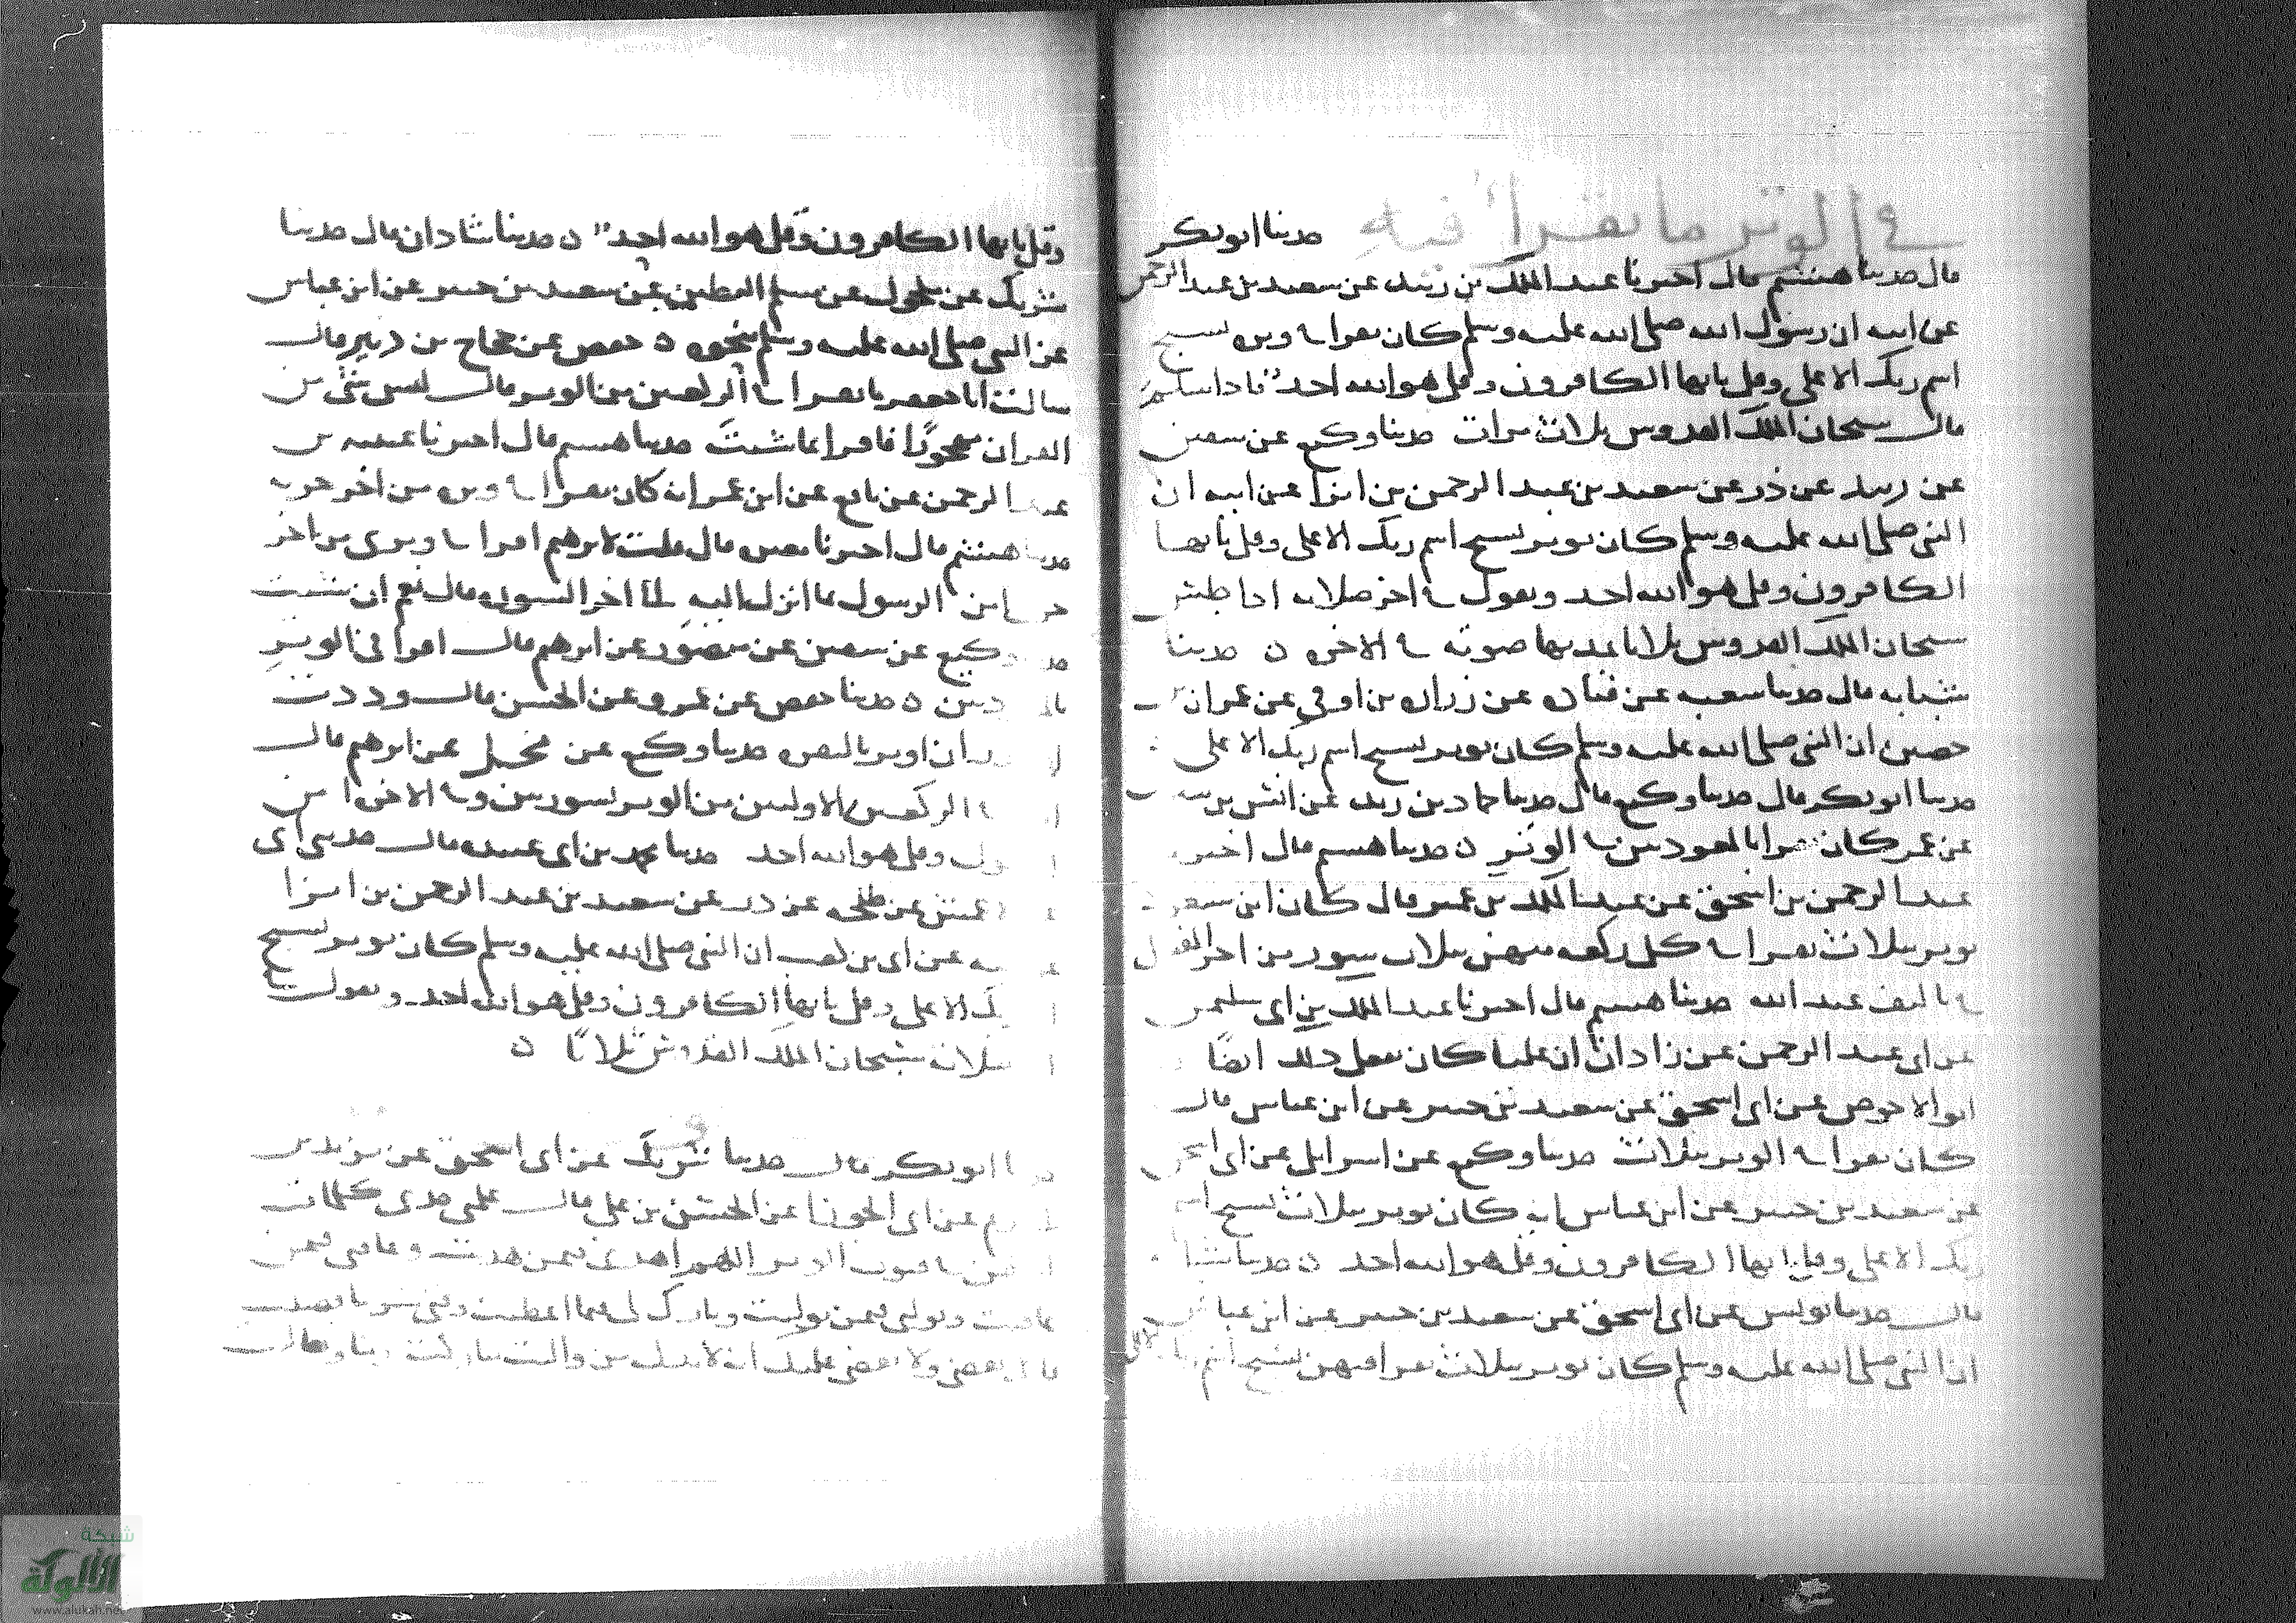 في الوتر ما يقرأ فيه حدثنا ابو بكر
قال حدثنا هشيم قال اخبرنا عبد الملك بن عن سعيد بن عبد الرحمن
عن ابيه ان رسول الله صلى الله عليه وسلم كان يقرا في وتره بسبح
اسم ربك الاعلى وقل يايها الكافرون وقل هو الله احد فاذا سلم
قال سبحان الملك القدوس ثلاث مرات حدثنا وكيع عن سفين
عن زبيد عن ذر عن سعيد بن عبد الرحمن بن ابزا عن ابيه ان
النبي صلى الله عليه وسلم كان يوتر بسبح اسم ربك الاعلى وقل يايها
الكافرون وقل هو الله احد ويقول في اخر صلاته اذا جلس
سبحان الملك القدوس ثلاثا يمد بها صوته في الاخره ن حدثنا
شبابه قال حدثنا شعبه عن قتاده عن زراره بن اوفى عن عمران بن
حصين ان النبي صلى الله عليه وسلم كان يوتر بسبح اسم ربك الاعلى
حدثنا ابو بكر قال حدثنا وكيع قال حدثنا حماد بن زيد عن انس بن سيرين
عن عمر كان يقرا بالمعوذتين في الوتر ن حدثنا هشيم قال اخبرنا
عبد الرحمن بن اسحق عن عبد الملك بن عمير قال كان ابن مسعود
يوتر بثلاث يقرا في كل ركعه منهن بثلاث سور من اخر المفصل
في تاليف عبد الله حدثنا هشيم قال اخبرنا عبد الملك بن ابي سليمن
عن ابي عبد الرحمن عن زاذان ان عليا كان يفعل ذلك ايضا
ابو الاحوص عن ابي اسحق عن سعيد بن جبير عن ابن عباس قال
كان يقرا في الوتر بثلاث حدثنا وكيع عن اسرايل عن ابي اسحق
عن سعيد بن جبير عن ابن عباس انه كان يوتر بثلاث بسبح اسم
ربك الاعلى وقل يايها الكافرون وقل هو الله احد ن حدثنا شبابه
قال حدثنا يونس عن ابي اسحق عن سعيد بن جبير عن ابن عباس
ان النبي صلى الله عليه وسلم كان يوتر بثلاث يقرا فيهن بسبح اسم ربك الاعلى
وقل يايها الكافرون وقل هو الله احد ن حدثنا شاذان قال حدثنا
شريك عن مخول عن مسلم البطين عن سعيد بن جبير عن ابن عباس
عن النبي صلى الله عليه وسلم بنحوه ن حفص عن حجاج بن دينر قال
سالت ابا جعفر ما يقرا في الركعتين من الوتر قال ليس شئ من
القران مهجورا فاقرا بما شيت حدثنا هشيم قال اخبرنا عيينه بن
عبد الرحمن عن نافع عن ابن عمر انه كان يقرا في وتره من اخر حزبه
حدثنا هشيم قال اخبرنا قال قلت لابرهيم اقرا في وتري من اخر
حزبي امن الرسول بما انزل اليه الى اخر السوره قال نعم ان شيت
وكيع عن سفين عن منصور عن ابرهيم قال اقرا في الوتر
ن حدثنا حفص عن عمرو عن الحسن قال وددت
ان اوتر بالبقره حدثنا وكيع عن محل عن ابرهيم قال
الركعتين الاوليين من الوتر بسورتين وفي الاخره امن
وقل هو الله احد حدثنا محمد بن ابي عبيده قال حدثني ابي
عن طلحه عن ذر عن سعيد بن عبد الرحمن بن ابزا
عن ابي بن كعب ان النبي صلى الله عليه وسلم كان يوتر بسبح
ربك الاعلى وقل يايها الكافرون وقل هو الله احد ويقول
ثلاث سبحان الملك القدوس ثلاثا ن
ابو بكر قال حدثنا شريك عن ابي اسحق عن بريد بن
عن ابي الجوزا عن الحسن بن علي قال علمني جدي كلمات
في قنوت الوتر اللهم اهدني فيمن هديت وعافني فيمن
عافيت وتولني فيمن توليت وبارك لي فيما اعطيت وقني شر ما قضيت
تقضي ولا يقضى عليك انه لا يذل من واليت تباركت ربنا وتعاليت
شبكة
الألوكة
www.alukah.net